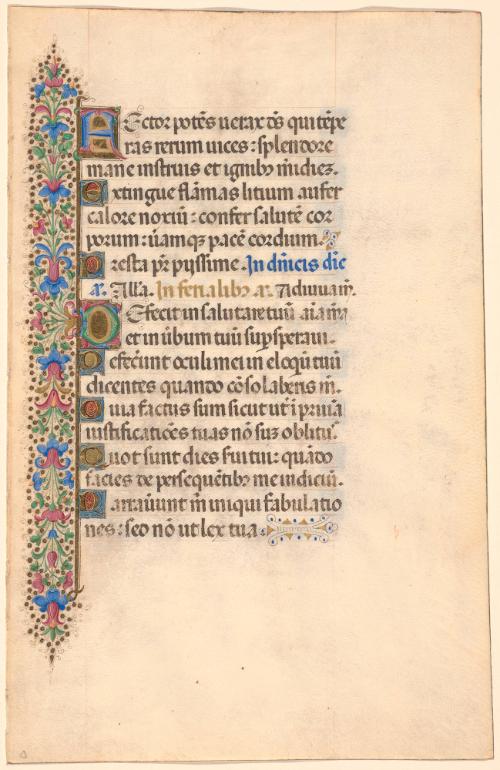 Rector potēs uerax ds̄ qui tēpe
ras rerum uices : splendore
mane instruis et ignibꝰ m̄idiez.
Extingue flāmas litium aufer
calore noxiū : confer salutē cor
porum : ueramqȝ pacē cordium.
Presta pr̄ pijssime. In dn̄icis dic
ar. Alla. In ferialibꝰ ar. Adiuua m̄.
Defecit in salutare tuū aīa m̄a
et in ūbum tuū suꝑsperaui.
Defecerunt oculi mei in eloqū tuū
dicentes quando cōsolaberis m̄.
Quia factus sum sicut ut̄ i pruīa
iustificatiōes tuas nō suȝ oblitus.
Quot sunt dies ſui tui : quādo
facies de persequētibꝰ me iudiciū.
Narrauūunt m̄ iniqui fabulatio
nes : sed nō ut lex tua.